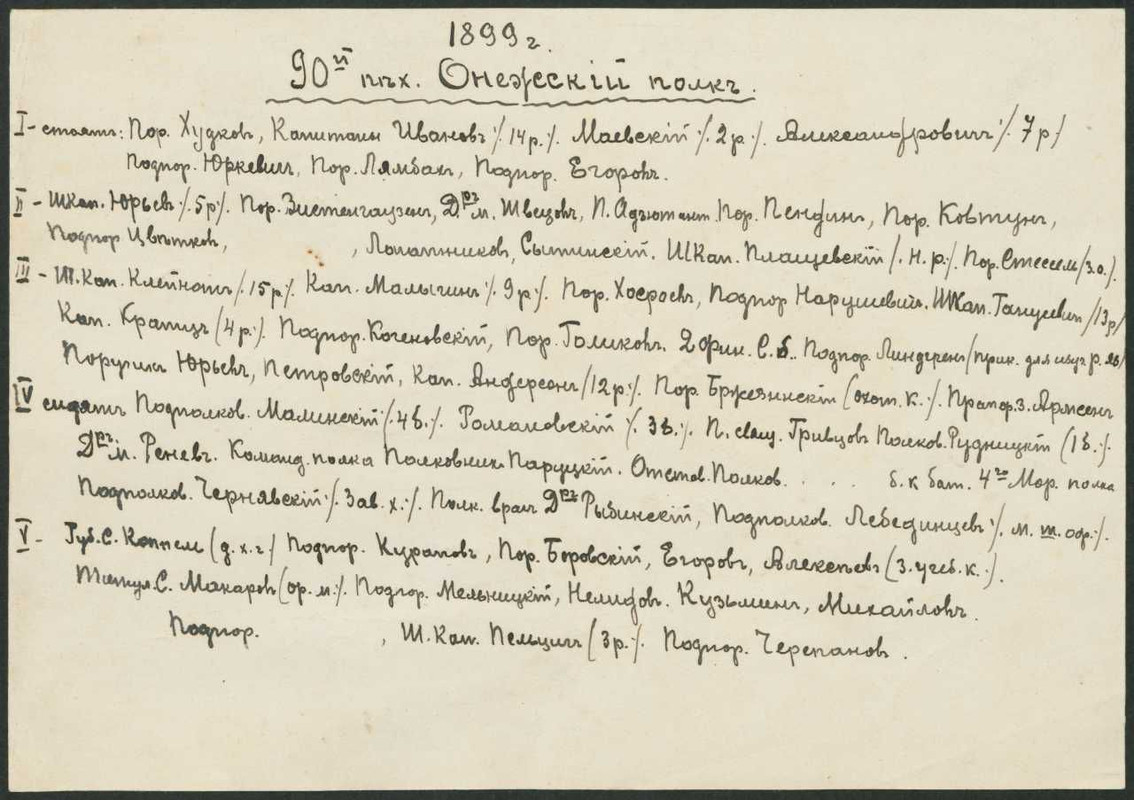 1899 г.
90ый пѣх. Онежскій полкъ.
I - стоятъ: Пор. Худковъ, Капитаны Ивановъ /.14 р./. Маевскій /.2 р./. Александровичъ /.7 р./
Подпор. Юркевичъ, Пор. Лямбахъ, Подпор. Егоровъ.
II - Шкап. Юрьевъ /.5 р./. Пор. Витенгаузенъ, Дръ м. Швецовъ, П. Адъютант Пор. Пендинъ, Пор. Ковтунъ,
Подпор Цвѣтков, , Лопатников, Сытинскій. Шкап. Плащевскій /. н. р./. Пор. Стессель /з.о./.
III - Ш. Кап. Клейнотъ /.15 р./. Кап. Малыгинъ /.9 р./. Пор. Хосроевъ, Подпор Нарушевич. Шкап. Ганусевич /13 р/
Кап. Кратцъ (4 р./. Подпор. Коченовскій, Пор. Голиковъ. 2 Фин. С. б. Подпор. Линдгренъ /прик. для изуч. р. яз/
Поручик Юрьевъ, Петровскій, Кап. Андерсонъ /12 р./. Пор. Бржезинскій (охот. к./. Прапор. з. Армсенъ
IV сидятъ Подполков. Малинскій /.4 б./. Романовскій /.3 б./. П. свящ. Гривцовъ Полков. Рудницкій (1 б./.
Дръ м. Реневъ. Команд. полка Полковник Паруцкій. Отстав. Полков. . . . б. к бат. 4го Мор. полка
Подполков. Чернявскій /.Зав. х./. Полк. врач Дръ Рыбинскій, Подполков. Лебединцевъ /. м. ш. ор./.
V - Губ. С. Коппель (д. х. ч./ Подпор. Курановъ, Пор. Боровскій, Егоровъ, Алексѣевъ (З. учеб. к./.
Титул. С. Макаровъ (ор. м./. Подпор. Мельницкій, Нелидовъ. Кузьминъ, Михайловъ.
Подпор. , Ш. Кап. Пельцигъ (3 р./. Подпор. Черепановъ.